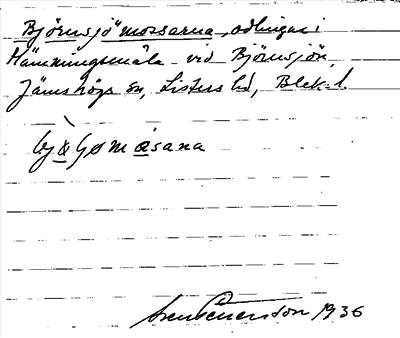 Björnsjömossarna, odlingar i
Hämmningsmåla vid Björnsjön,
Jämshögs sn, Listers hd, Blek. l.
Sven Benson 1936